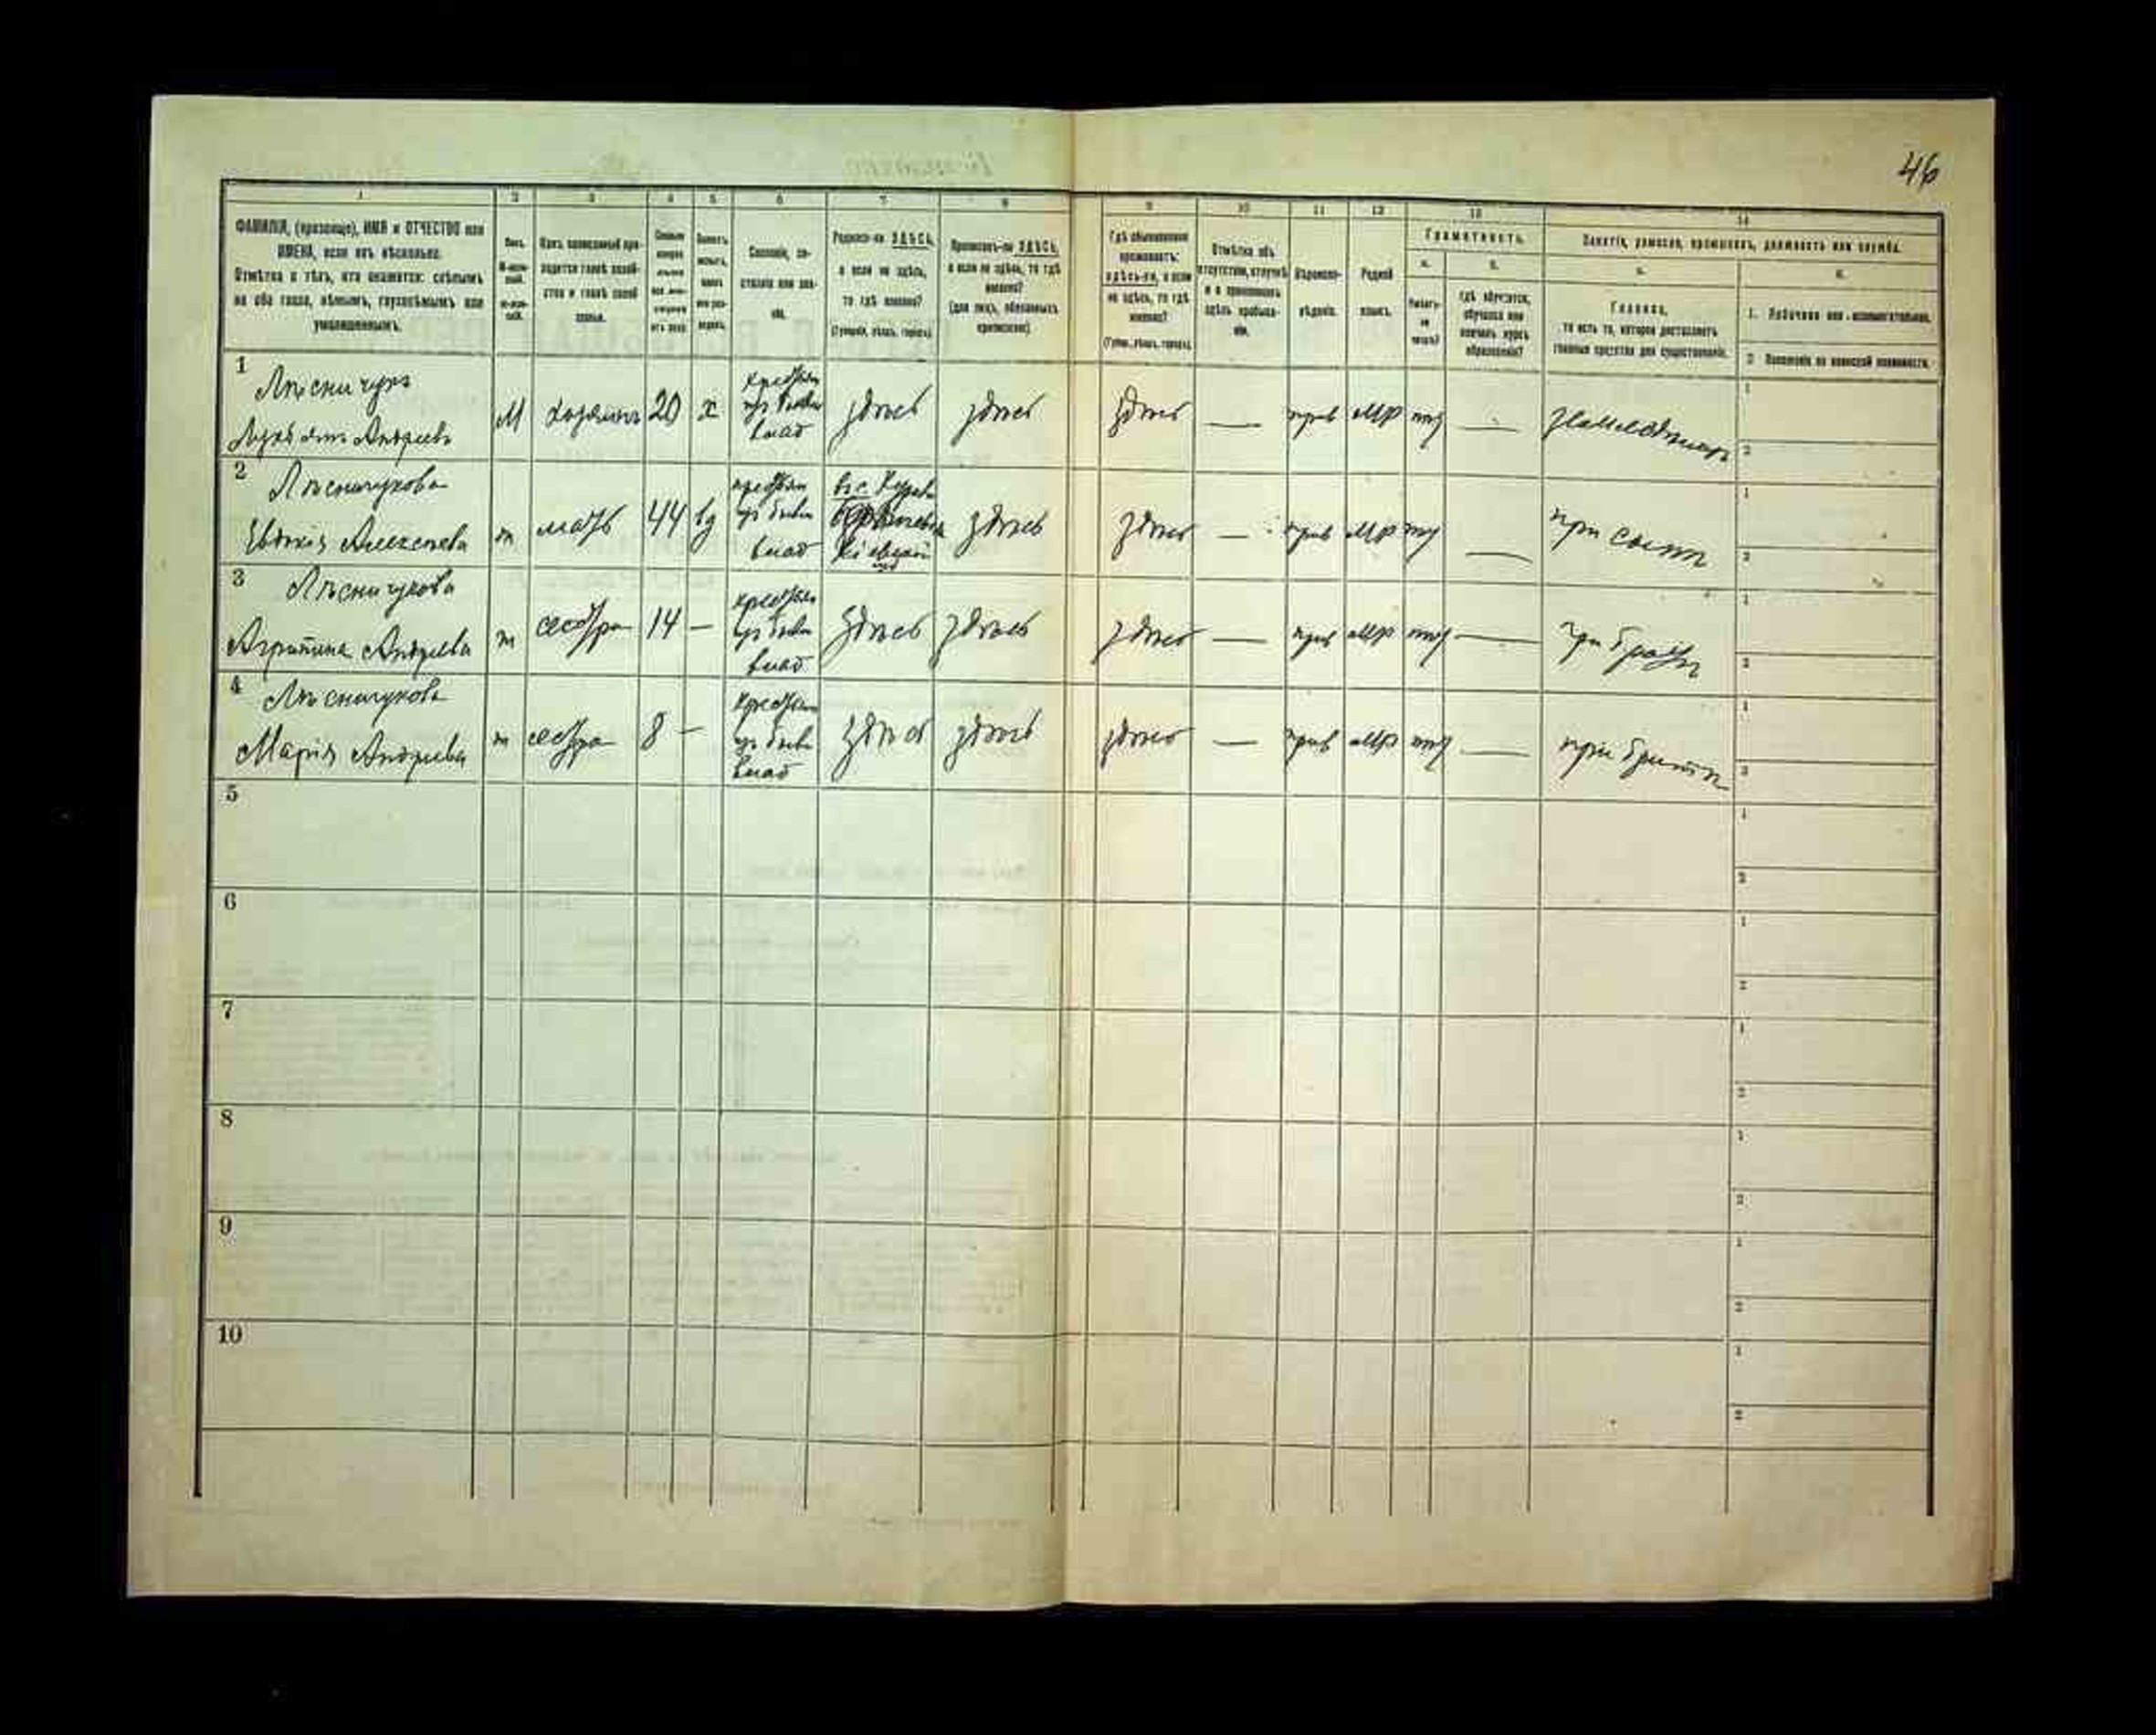 46
1 2 3 4 5 6 7 8 9 10 11 12 13 14
ФАМИЛІЯ, (прозвище), ИМЯ и ОТЧЕСТВО или
ИМЕНА, если ихъ нѣсколько.
Отмѣтка о тѣхъ, кто окажется: слѣпымъ
на оба глаза, нѣмымъ, глухонѣмымъ или
умалишеннымъ.
Полъ.
Сословіе, со-
стояніе или зва-
ніе.
Родился-ли ЗДѢСЬ,
а если не здѣсь,
то гдѣ именно?
(Губернія, уѣздъ, городъ).
Приписанъ-ли ЗДѢСЬ,
а если не здѣсь, то гдѣ
именно?
(для лицъ, обязанныхъ
припискою)
Гдѣ обыкновенно
проживаетъ:
здѣсь-ли, а если
не здѣсь, то гдѣ
именно?
(Губ., уѣздъ, городъ).
Отмѣтка объ
отсутствіи, отлучкѣ
и о временномъ
здѣсь пребыва-
ніи.
Вѣроиспо-
вѣданіе.
Родной
языкъ.
Грамотность.
а.
Умѣетъ-
ли
читать?
б.
гдѣ обучается,
обучался или
кончилъ курсъ
образованія?
Занятія, ремесло, промыселъ, должность или служба.
а.
Главное,
то есть то, которое доставляетъ
главныя средства для существованія.
б.
1. Побочное или вспомогательное.
2. Положеніе по воинской повинности.
1 Лѣсничукъ
Андреевъ
М хозяинъ 20 х
крестьян
изъ бывш
влад
здѣсь здѣсь здѣсь — прав мр нѣт — земледѣлецъ
1
2
2 Лѣсничукова
Евдокія Алексѣева
ж мать 44 вд
крестьян
изъ бывш
влад
въ с.
Кіевской
губ
здѣсь здѣсь — прав мр нѣт — при сынѣ
1
2
3 Лѣсничукова
Агрипина Андреева
ж сестра 14 —
крестьян
изъ бывш
влад
здѣсь здѣсь здѣсь — прав мр нѣт — при братѣ
1
2
4 Лѣсничукова
Марія Андреева
ж сестра 8 —
крестьян
изъ бывш
влад
здѣсь здѣсь здѣсь — прав мр нѣт — при братѣ
1
2
5
1
2
6
1
2
7
1
2
8
1
2
9
1
2
10
1
2